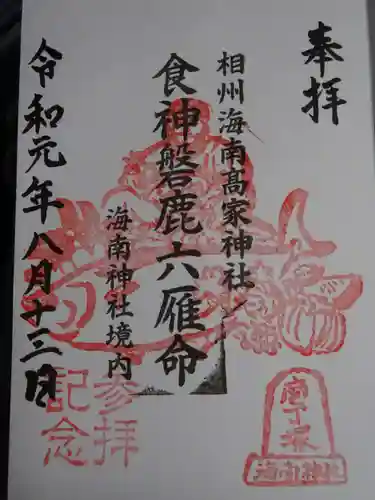 奉拝
相州海南高家神社
食神磐鹿六雁命
海南神社境内
令和元年八月十三日
参拝
記念
庖丁塚
海南神社